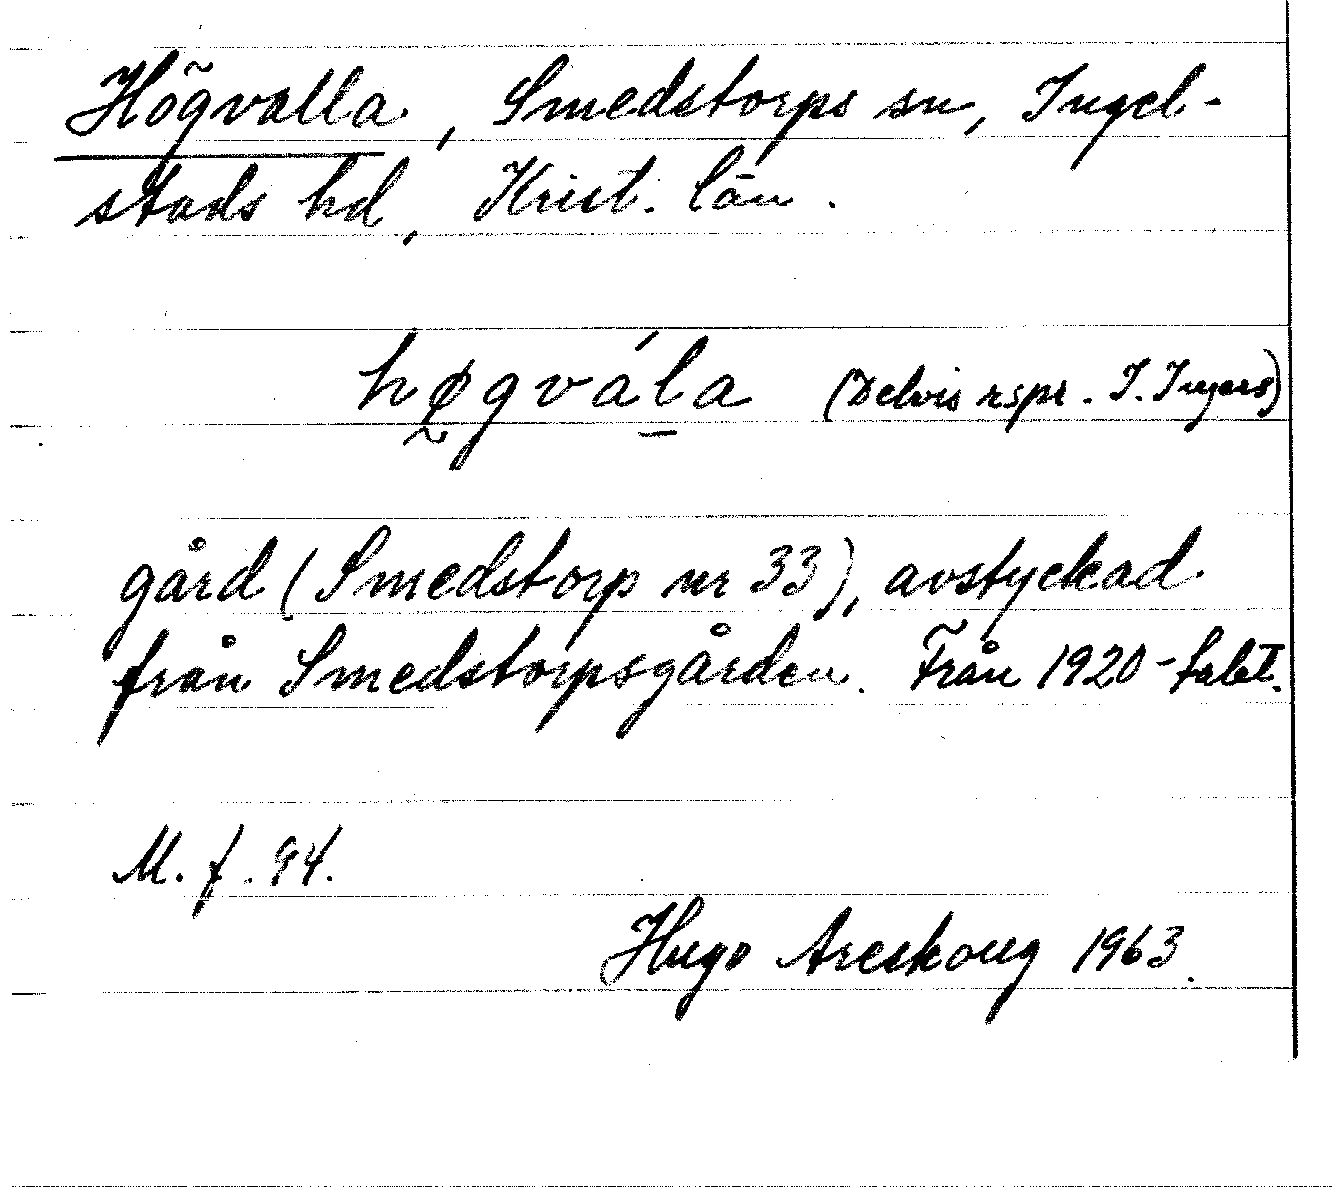 Högvalla, Smedstorps sn, Ingel-
stads hd, Krist. län.
hø̰gvála̠ (Delvis rspr. I. Ingers)
gård (Smedstorp nr 33), avstyckad
från Smedstorpsgården. Från 1920-talet.
M. f. 94.
Hugo Areskoug 1963.